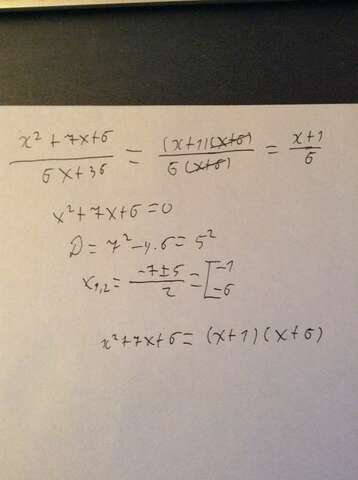 x² + 7x + 6 / 6x + 36 = (x+1)(x+6) / 6(x+6) = x+1 / 6
x² + 7x + 6 = 0
D = 7² - 4·6 = 5²
x₁,₂ = -7 ± 5 / 2 = [ -1 -6
x² + 7x + 6 = (x+1)(x+6)